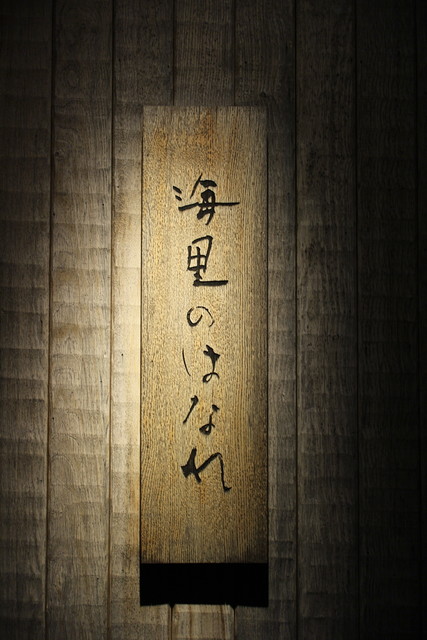 海里のはなれ